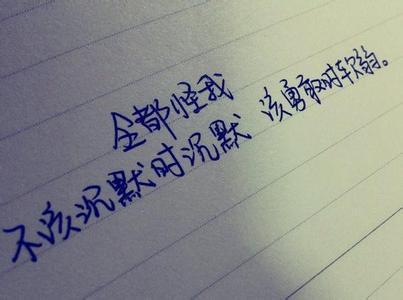 全都怪我
不该沉默时沉默 该勇敢时软弱。